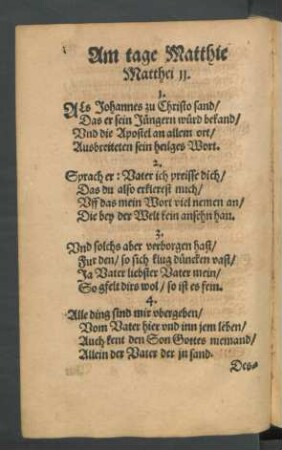 Am tage Matthie
Matthei 11.
1.
ALs Johannes zu Christo sand/
Das er sein Jüngern würd bekand/
Vnd die Apostel an allem ort/
Ausbreiteten sein heilges Wort.
2.
Sprach er: Vater ich preisse dich/
Das du also erklerest mich/
Vff das mein Wort viel nemen an/
Die bey der Welt kein ansehn han.
3.
Vnd solchs aber verborgen hast/
Fur den/ so sich klug düncken vast/
Ja Vater liebster Vater mein/
So gfelt dirs wol/ so ist es fein.
4.
Alle ding sind mir vbergeben/
Vom Vater hier vnd inn jem leben/
Auch kent den Son Gottes niemand/
Allein der Vater der jn sand.
Des-